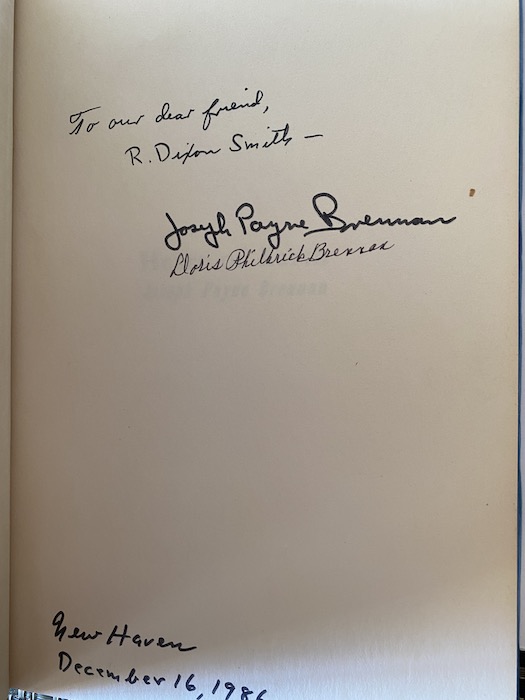 To our dear friend,
R. Dixon Smith —
Joseph Payne Brennan
Doris Philbrick Brennan
Joseph Payne Brennan
New Haven
December 16, 1986